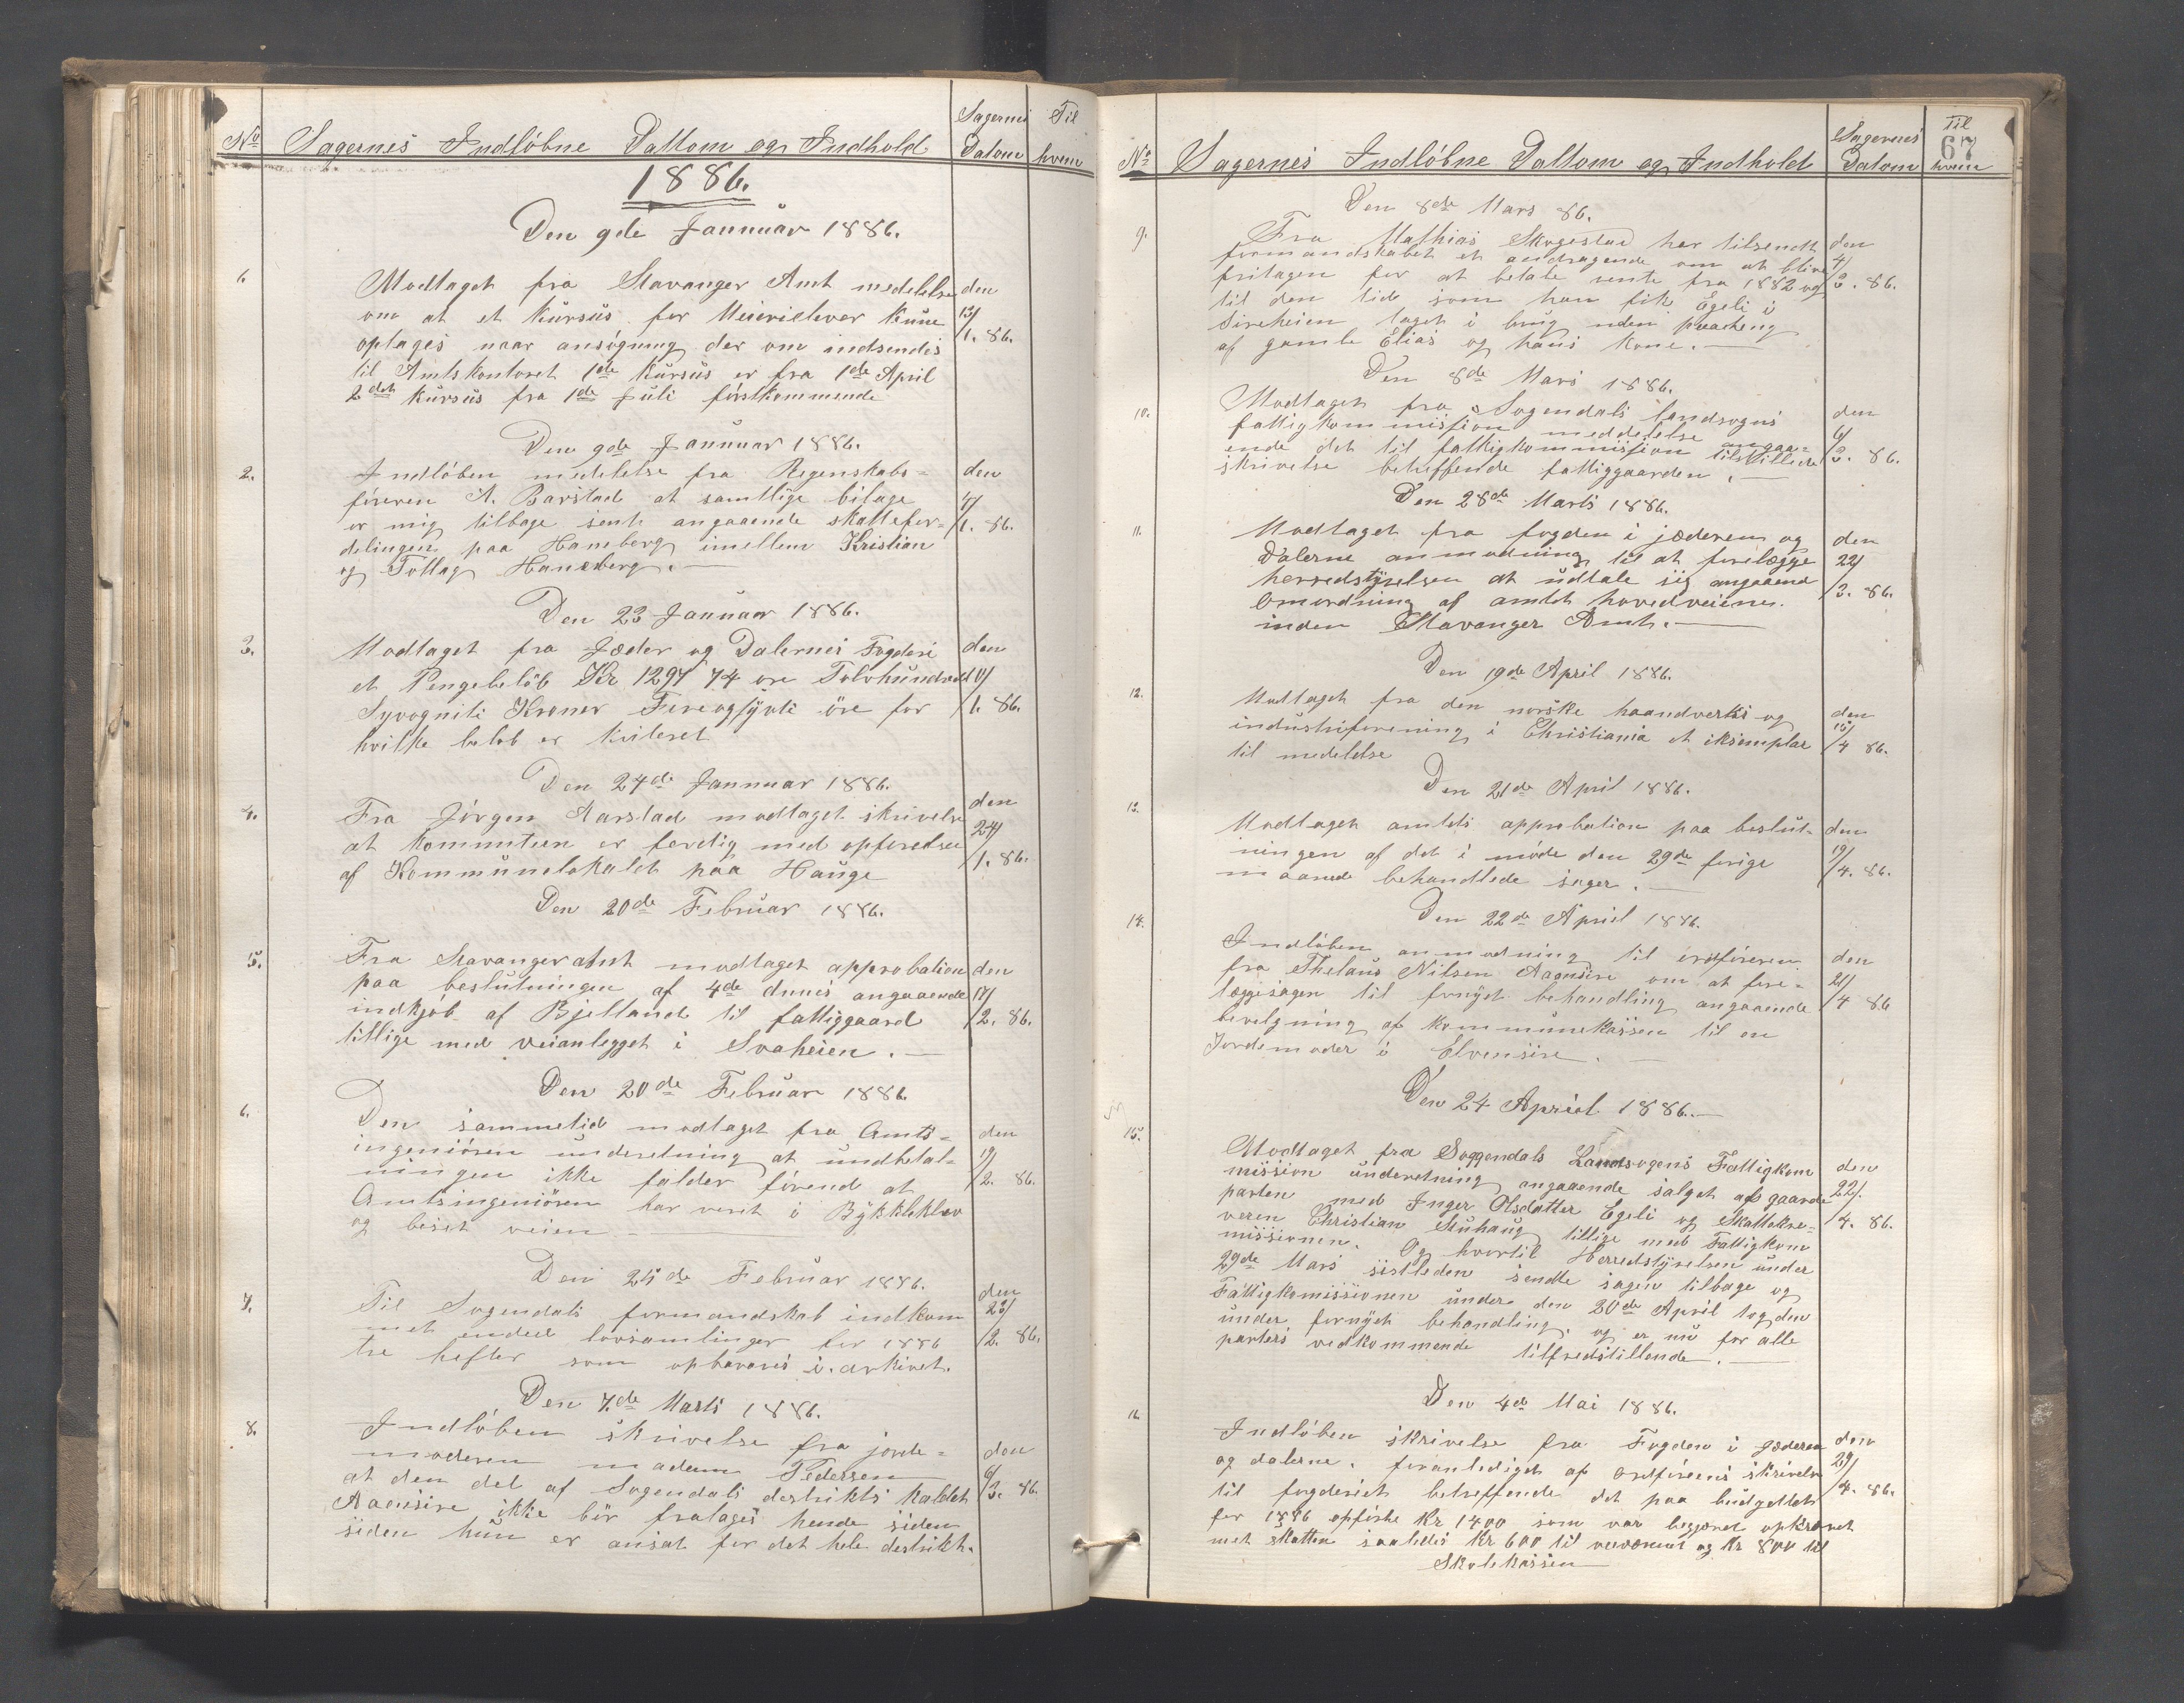 No Sagernes Indløbne Dattom og Indhold Sagernes Datom Til hvem
1886.
Den 9de Januar 1886.
1. Modtaget fra Stavanger Amt medelelse den
om at et kursus for Meierielever kune 13/
optages naar ansøgning der om indsendes 1. 86.
til Amtskontoret 1ste Kursus er fra 1ste April
2det kursus fra 1ste Juli førstkommende
Den 9de Januar 1886.
2. Indløben medelelse fra Regenskabs= den
føreren A. Barstad at samtlige bilage 4/
er mig tilbage sent angaaende skattefor= 1. 86.
delingen paa Haneberg imellem Kristian
og Tollag Haneberg.
Den 23 Januar 1886.
3. Modtaget fra Jæder og Dalernes Fogderi den
et Pengebeløb Kr 1297 74 øre Tolvhundred
Syvogniti Kroner Fireogsyvti øre for 1. 86.
hvilke beløb er kviteret
Den 24de Jannuar 1886.
4. Fra Jørgen Aarstad modtaget skrivelse den
at Kommiteen er ferdig med opførelsen 24/
af Kommunelokalet paa Hauge 1. 86.
Den 20de Februar 1886.
5. Fra Stavanger amt modtaget approbation den
paa beslutningen af 4de dennes angaaende 17/
indkjøb af Bjelland til fattiggaard 2. 86.
tillige med veianlegget i Svaheien.
Den 20de Februar 1886.
6. Den sammetid modtaget fra Amts= den
ingeniøren underetning at undbetal= 19/
ningen ikke falder førend at 2. 86.
Amtsingeniøren har verit i Bykkleklev
og beset veien
Den 25de Februar 1886.
7. Til Sogendals formandskab indkom den
met endeel lovsamlinger for 1886 23/
tre hefter som opbevares i arkivet. 2. 86.
Den 7.de Marts 1886.
8. Indløben skrivelse fra jorde= den
moderen madam Pedersen 6/
at den del af Sogendals destrikts kaldet 3. 86.
Aaensire ikke bør fratages hende siden
siden hun er ansat for det hele destrikt.
No Sagernes Indløbne Dattom og Indhold Sagernes Datom Til hvem
67
Den 8de Mars 86.
9. Fra Mathias Skogestad har tilsendt den
formandskabet et andragende om at blive 4/
fritagen for at betale rente fra 1882 og 3. 86.
til den tid som han fik Egeli i
Sireheien taget i brug uden
af gamle Elias og hans kone.
Den 8de Mars 1886.
10. Modtaget fra Sogendals landsogns den
fattigkommission meddelelse angaa= 6/
ende det til fattigkommission tilstillede 3. 86.
skrivelse betreffende fattiggaarden.
Den 28de Marts 1886.
11. Modtaget fra fogden i jæderen og den
Dalerne anmodning til at forelægge 22/
herredstyrelsen at udtale sig angaaend 3. 86.
Omordning af amtets hovedveiene.
inden Stavanger Amt.
Den 19de April 1886.
12. Modtaget fra den norske haandverks og den
industriforening i Christiania et iksemplar 15/
til medelelse 4 86.
Den 21de April 1886.
13. Modtaget amtets approbation paa beslut= den
ningen af det i møde den 29de forige 19/
maaned behandlede sager. 4. 86.
Den 22de April 1886.
14. Indløben anmodning til ordføreren den
fra Thelaus Nilsen Aaensire om at fore= 21/
læggesagen til fornyet behandling angaaende 4 86
bevelgning af kommunekassen til en
Jordemoder i Elvensire.
Den 24 Apriel 1886.
15. Modtaget fra Soggendals Landsogens Fattigkom den
mission underetning angaaende salget af gaarde 22/.
parten med Inger Olsdatter Egeli og Skattekre= 4. 86.
veren Christian Stuhaug tillige med Fattigkom
missionen. Og hvortil Herredstyrelsen under
29de Mars sistleden sendte sagen tilbage og
Fattigkomissionen under den 20de April tog den
under fornyet behandling, og er nu for alle
parters vedkommende tilfredstillende.
Den 4de Mai 1886.
16. Indløben skrivelse fra Fogden i Jæderen den
og dalerne. foranlediget af ordførerens skrivelse 29/
til fogderiet betreffende det paa budgettet 4. 86.
for 1886 opførte Kr 1400 som var begjæret opkrævet
met skatten saaledes Kr 600 til veivæsenet og Kr 800 til
Skolekassen